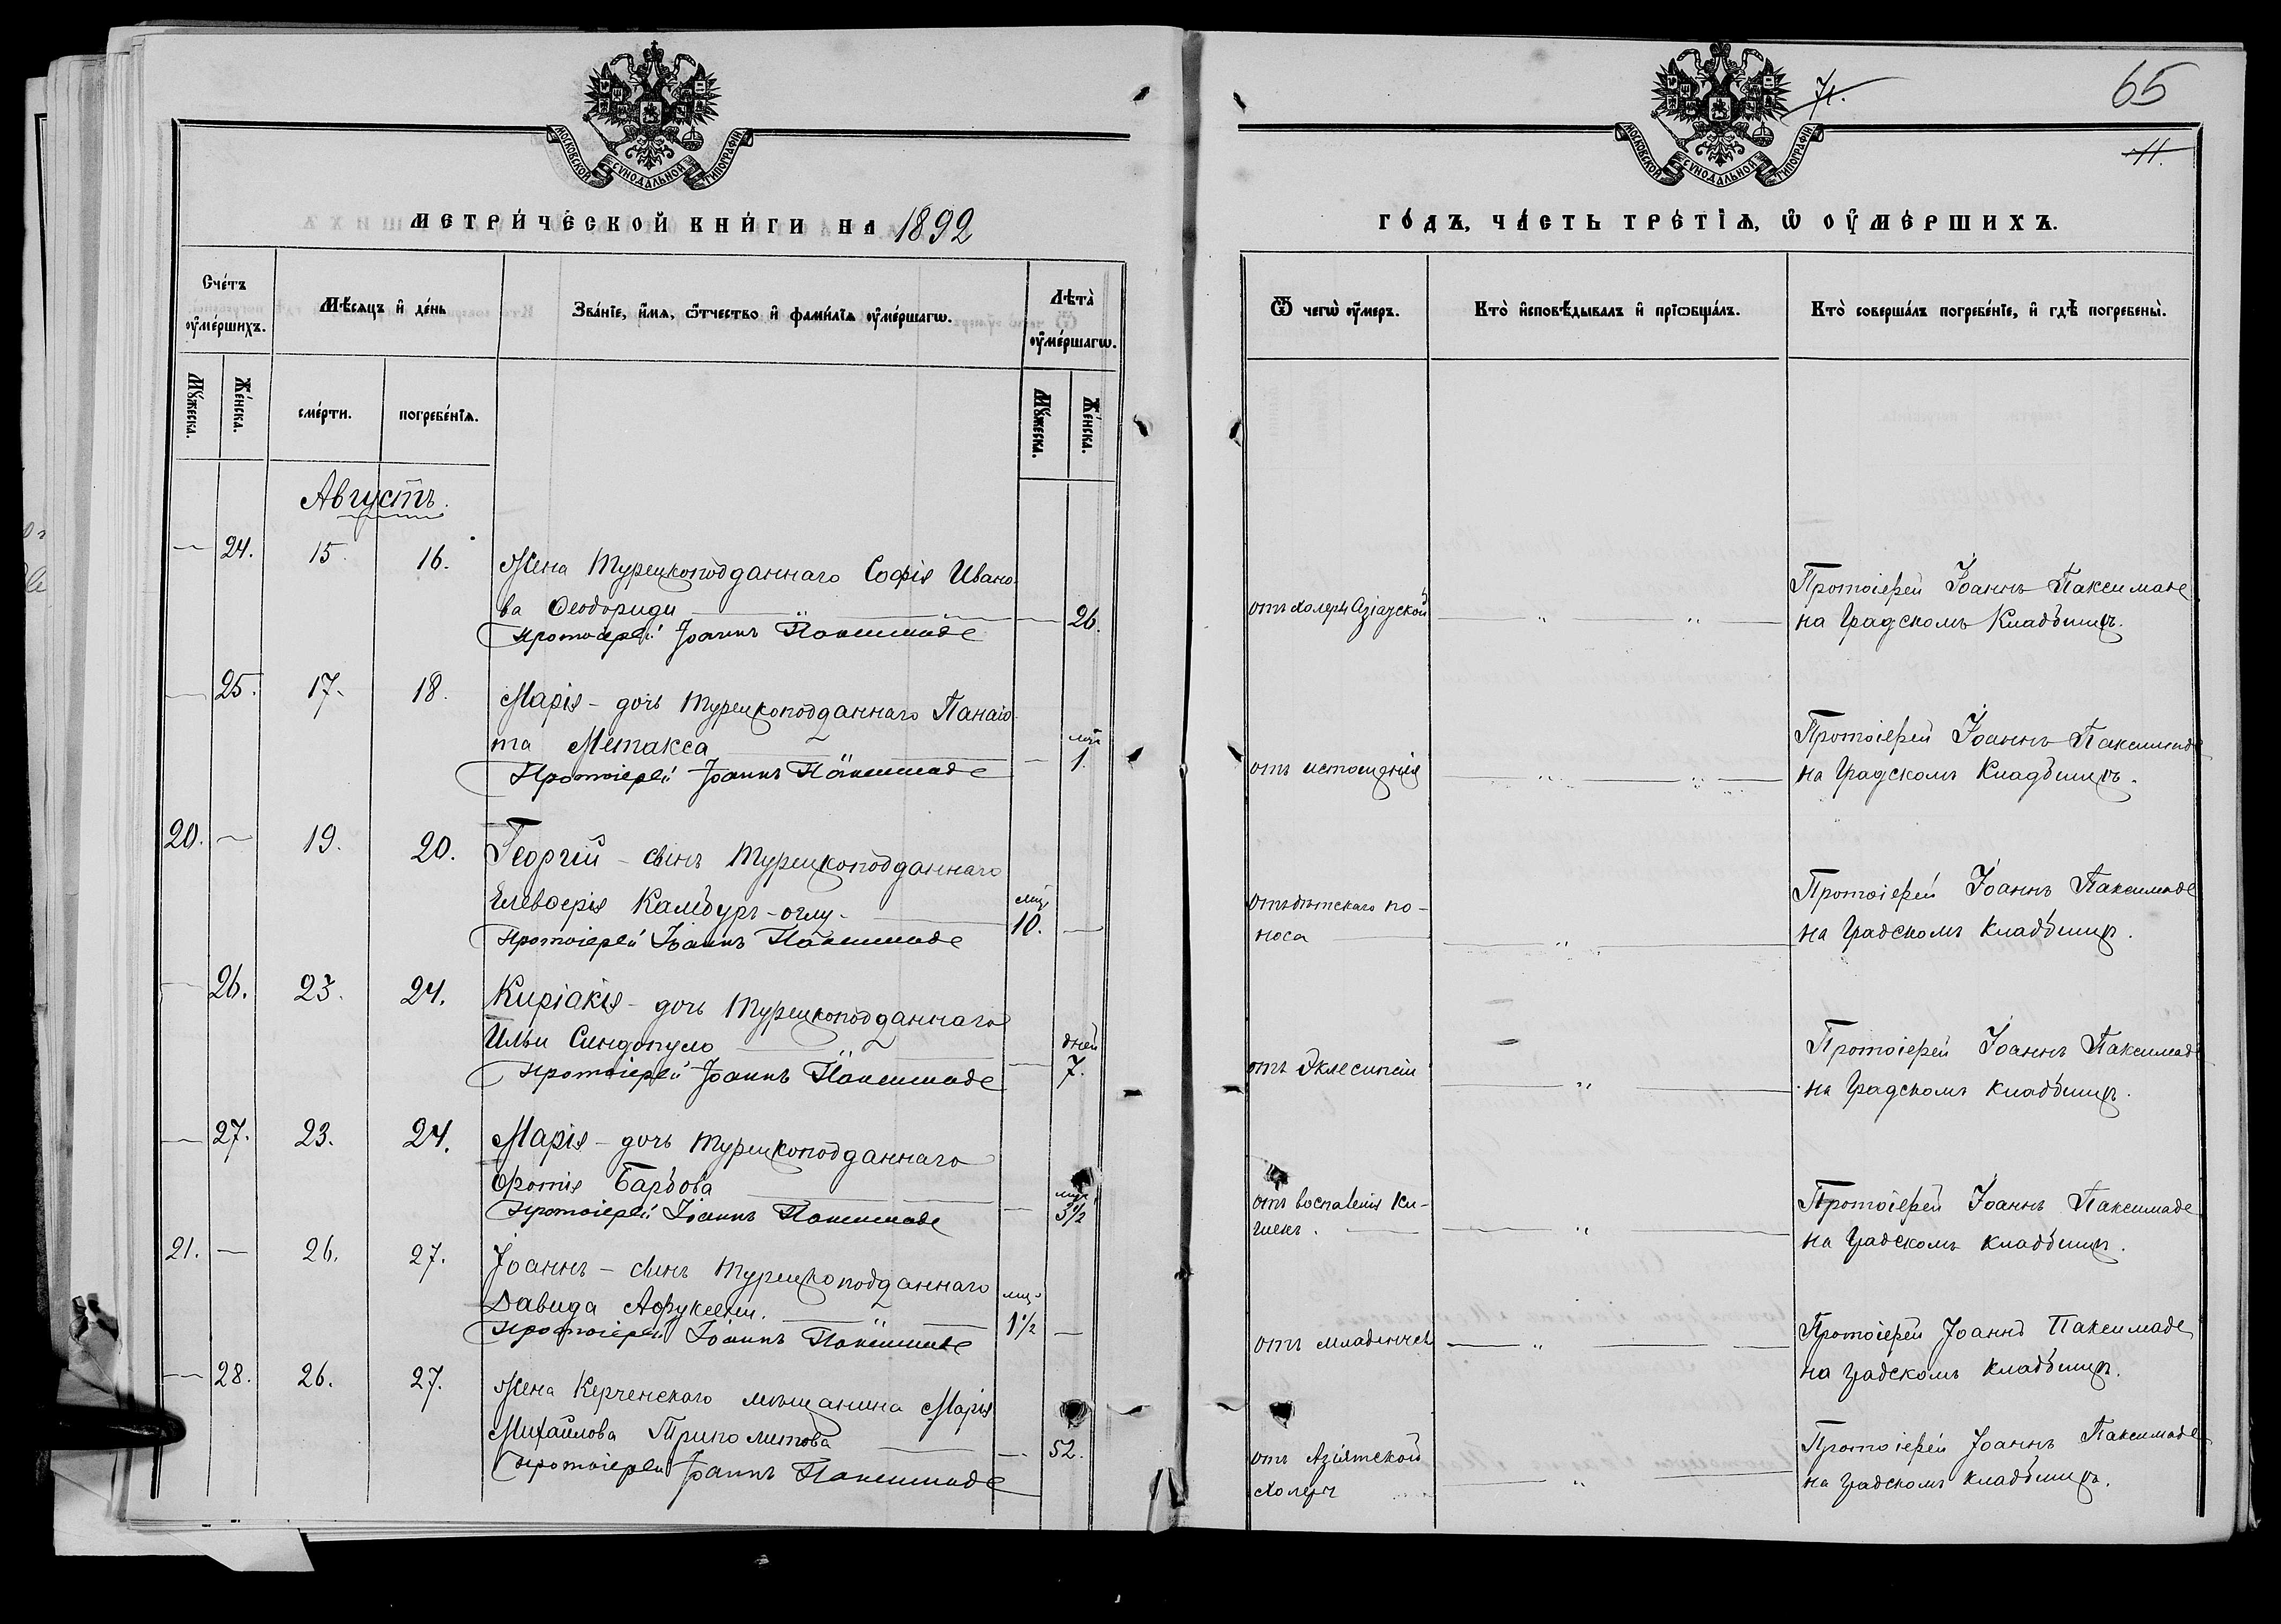 МОСКОВСКОЙ СѴНОДАЛЬНОЙ ТИПОГРАФІИ
МЕТРИ́ЧЕСКОЙ КНИ́ГИ НА 1892
Сче́тъ ᲂу҆ме́ршихъ.
Мѣ́сяцъ и҆ де́нь
Зва́нїе, и҆́мя, ѻ҆́тчество и҆ фами́лїя ᲂу҆ме́ршагѡ.
Лѣта̀ ᲂу҆ме́ршагѡ.
Мꙋ́жеска.
Же́нска.
сме́рти.
погребе́нїѧ.
Мꙋ́жеска.
Же́нска.
Августъ.
— 24. 15. 16. Жена Турецкоподданнаго Софія Ивано-
ва Ѳеодориди — 26.
Протоіерей Іоаннъ Паксимаде
— 25. 17. 18. Марія - дочь Турецкоподданнаго Панаіо-
та Метакса — мѣс. 1.
Протоіерей Іоаннъ Паксимаде
20. — 19. 20. Георгій - сынъ Турецкоподданнаго
Елевѳерія Камбуръ-оглу - мѣц. 10. —
Протоіерей Іоаннъ Паксимаде
— 26. 23. 24. Киріакія - дочь Турецкоподданнаго
Ильи Синдопуло — дней 7.
Протоіерей Іоаннъ Паксимаде
— 27. 23. 24. Марія - дочь Турецкоподданнаго
Фотія Барбова — мѣц. 3½
Протоіерей Іоаннъ Паксимаде
21. — 26. 27. Іоаннъ - сынъ Турецкоподданнаго
Давида мѣц. 1½ —
Протоіерей Іоаннъ Паксимаде
— 28. 26. 27. Жена Керченскаго мѣщанина Марія
Михайлова Триполитова — 52.
Протоіерей Іоаннъ Паксимаде
71.
65
11.
МОСКОВСКОЙ СѴНОДАЛЬНОЙ ТИПОГРАФІИ
ГО́ДЪ, ЧА́СТЬ ТРЕ́ТІѦ, Ѡ҆ ОУ҆МЕ́РШИХЪ.
Ѿ чегѡ̀ ᲂу҆́меръ.
Кто̀ и҆сповѣ́дывалъ и҆ прїѡбща́лъ.
Кто̀ соверша́лъ погребе́нїе, и҆ гдѣ̀ погребены̀.
отъ холеры Азіатской
Протоіерей Іоаннъ Паксимаде
на Градскомъ Кладбищѣ.
отъ истощенія
Протоіерей Іоаннъ Паксимаде
на Градскомъ Кладбищѣ.
отъ дѣтскаго по-
носа
Протоіерей Іоаннъ Паксимаде
на Градскомъ Кладбищѣ.
отъ Эклесипсіи
Протоіерей Іоаннъ Паксимаде
на Градскомъ Кладбищѣ.
отъ воспаленія ки-
шекъ.
Протоіерей Іоаннъ Паксимаде
на Градскомъ Кладбищѣ.
отъ младенчес
Протоіерей Іоаннъ Паксимаде
на Градскомъ Кладбищѣ.
отъ Азіятской
холеры
Протоіерей Іоаннъ Паксимаде
на Градскомъ кладбищѣ.